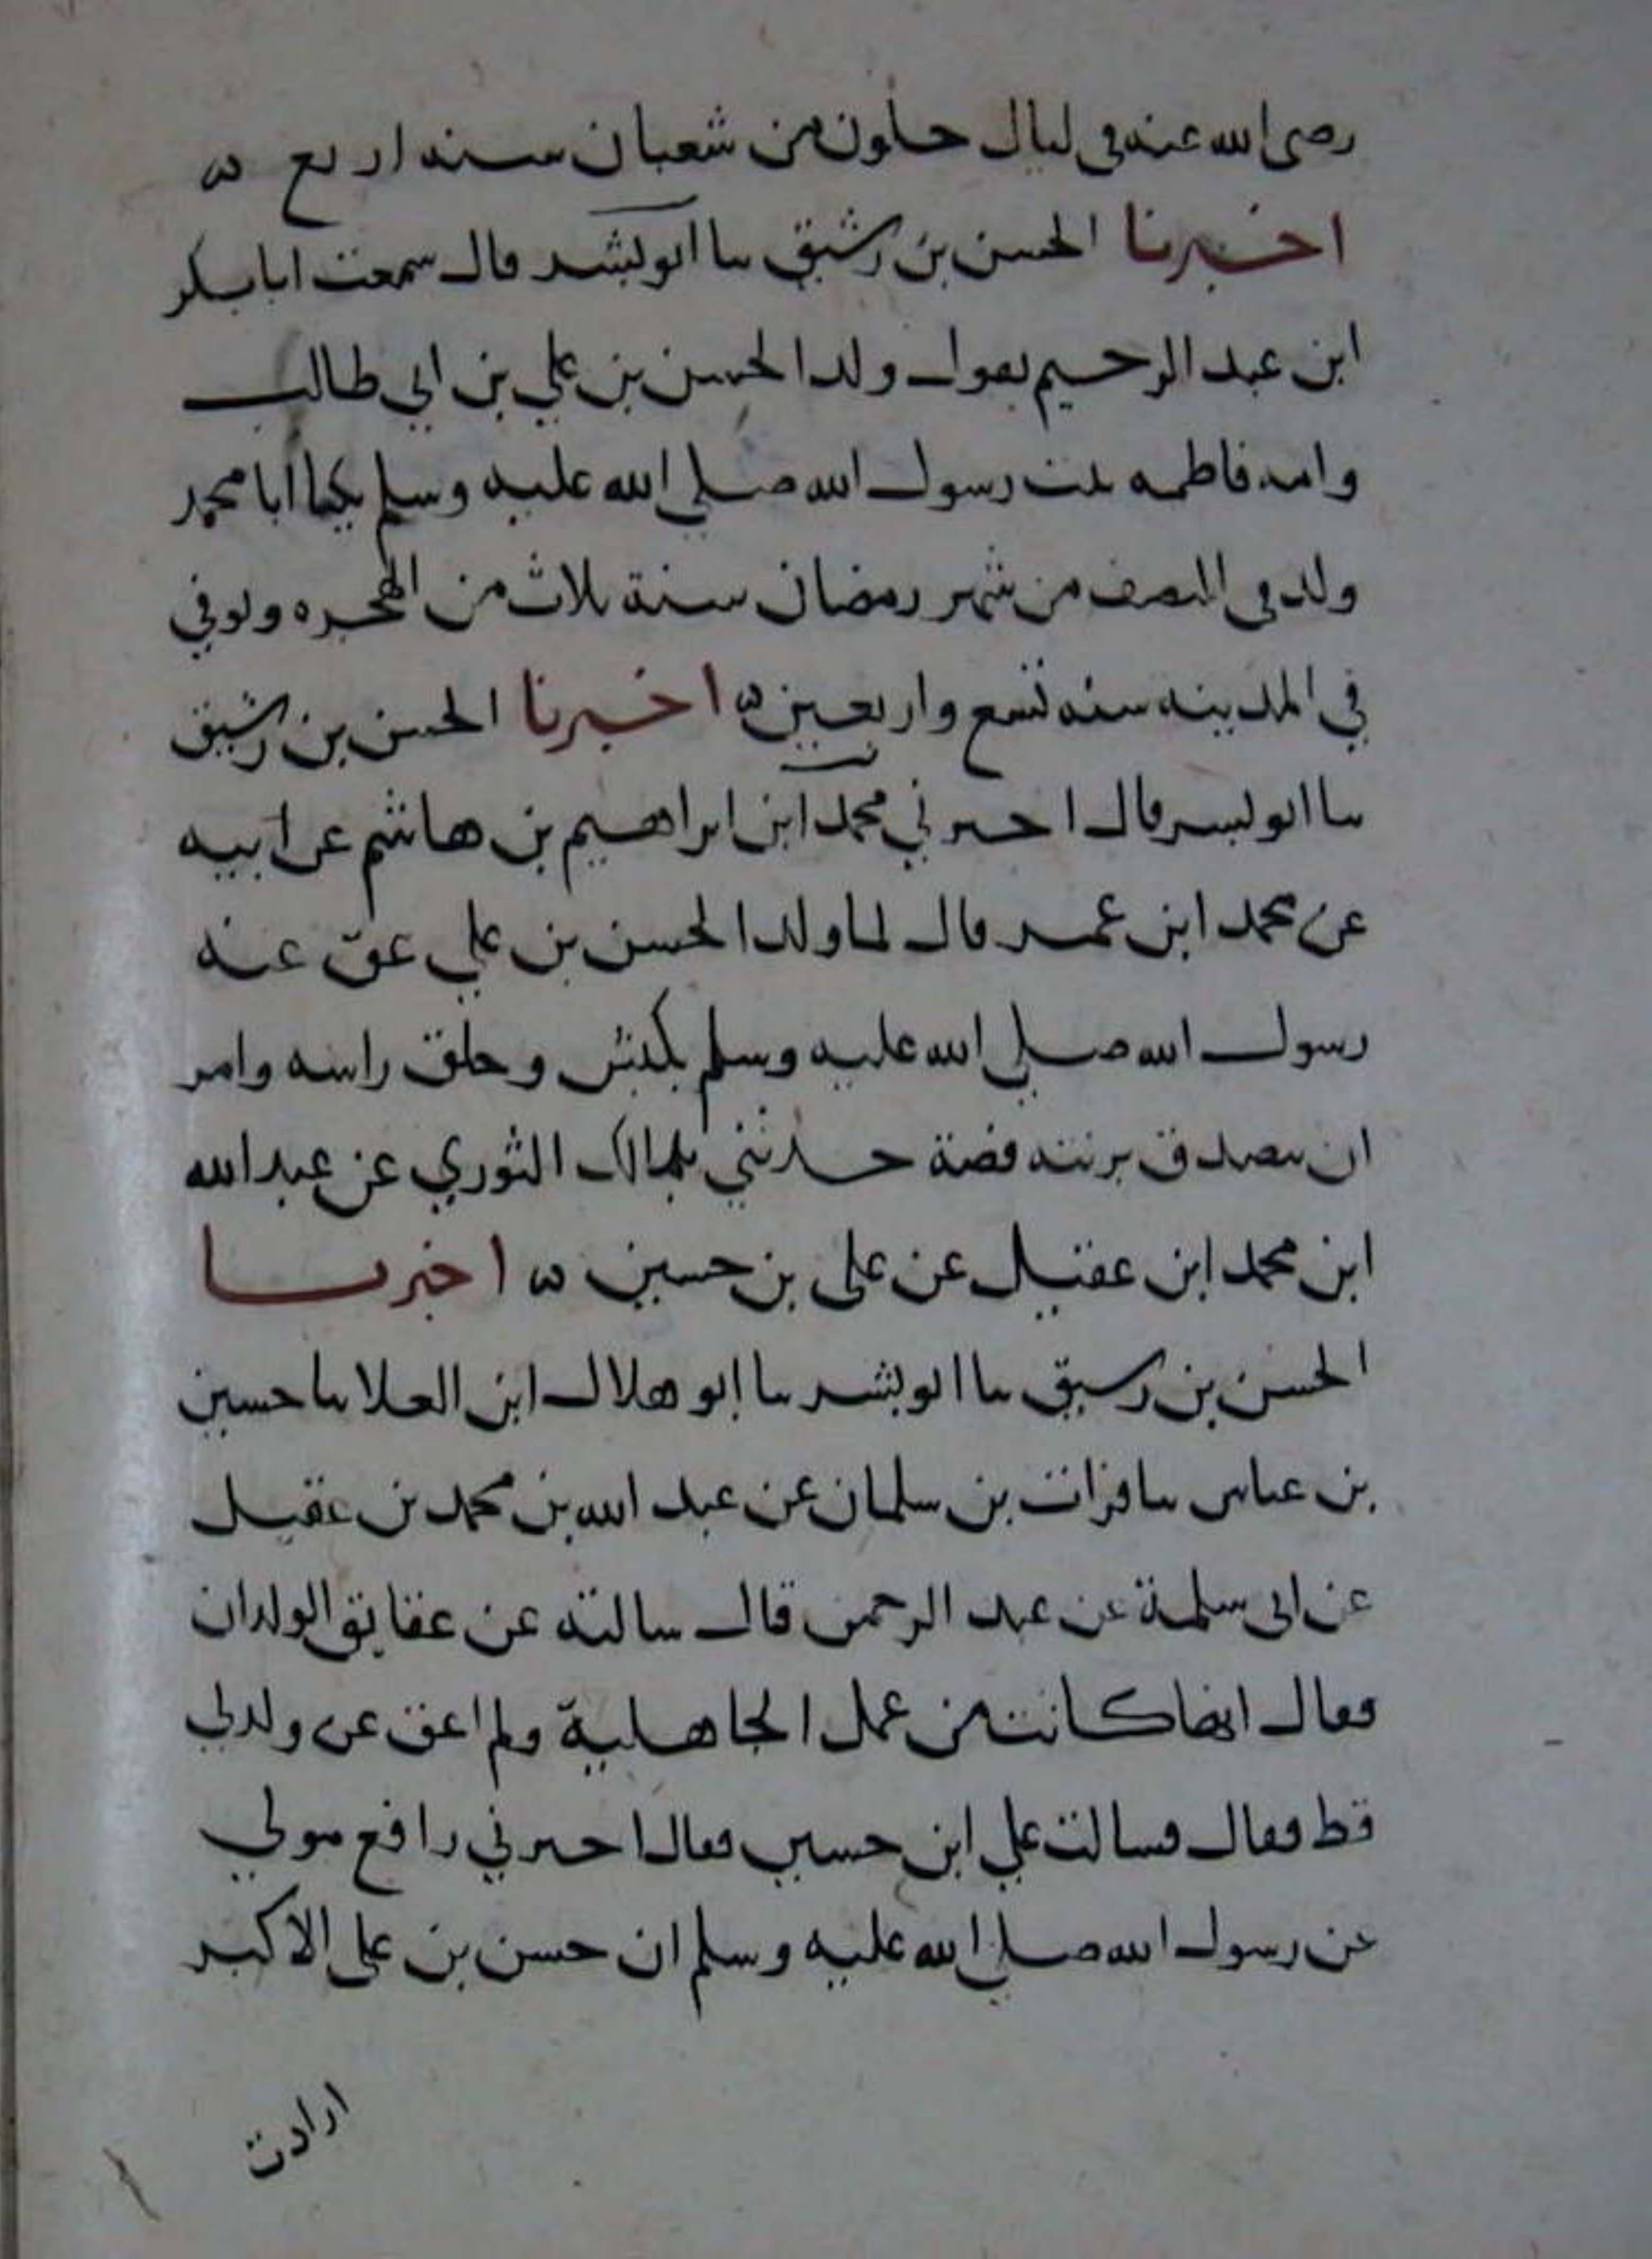 رضى الله عنه فى ليال خلون من شعبان سنه اربع ه
اخبرنا الحسن بن رشيق نا ابو بشر قال سمعت ابا بكر
ابن عبد الرحيم يقول ولد الحسن بن علي بن ابي طالب
وامه فاطمه بنت رسول الله صلي الله عليه وسلم يكنا ابا محمد
ولد فى النصف من شهر رمضان سنة ثلاث من الهجره وتوفي
في المدينه سنه تسع واربعين ه اخبرنا الحسن بن رشيق
نا ابو بشر قال اخبرني محمد ابن ابراهيم بن هاشم عن ابيه
عن محمد ابن عمر قال لما ولد الحسن بن علي عق عنه
رسول الله صلي الله عليه وسلم بكبش وحلق راسه وامر
ان يتصدق بزنته فضة حدثني الثوري عن عبد الله
ابن محمد ابن عقيل عن على بن حسين ه اخبرنا
الحسن بن رشيق نا ابو بشر نا ابو هلال ابن العلا نا حسين
بن عياش نا فرات بن سلمان عن عبد الله بن محمد بن عقيل
عن ابى سلمة عن عبد الرحمن قال سالته عن عقايق الولدان
فقال انها كانت من عمل الجاهلية ولم اعق عن ولد لي
قط فقال فسالت علي ابن حسين فقال اخبرني رافع مولي
عن رسول الله صلي الله عليه وسلم ان حسن بن على الاكبر
ارادت